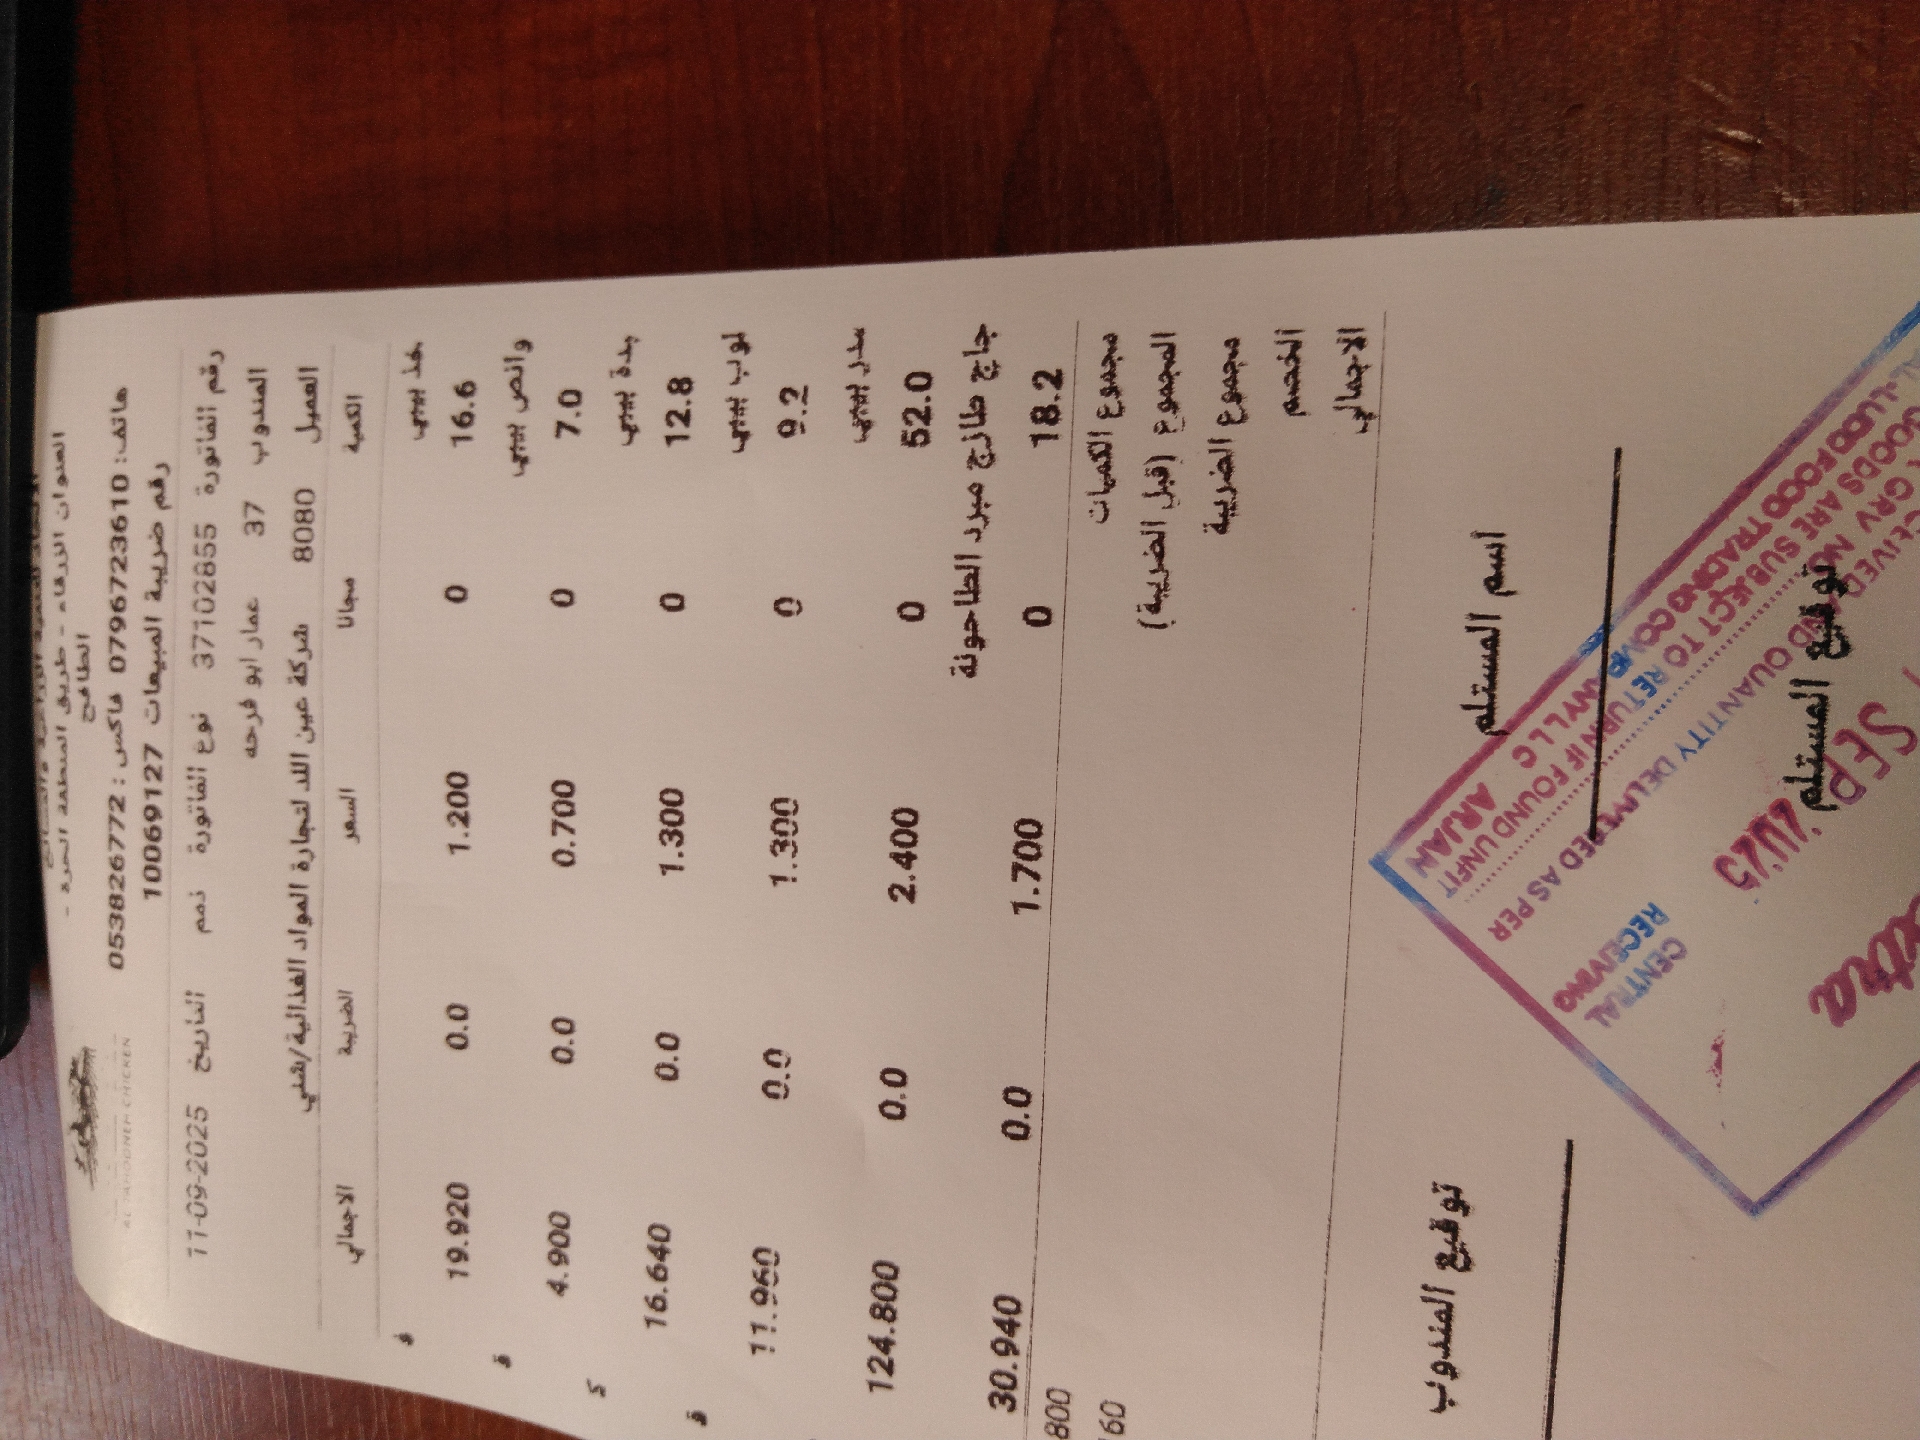 العنوان الزرقاء - طريق المنطقة الحرة -
الطافح
هاتف: 0796723610 فاكس : 0538267772
رقم ضريبة المبيعات 10069127
AL TAHOONEH CHICKEN
رقم الفاتورة 37102855 نوع الفاتورة ذمم التاريخ 11-09-2025
المندوب 37 عمار ابو فرحه
العميل 8080 شركة عين اللد لتجارة المواد الغذائية/شلي
الكمية مجانا السعر الضريبة الاجمالي
فخذ بيبي
16.6 0 1.200 0.0 19.920
وانص بيبي
7.0 0 0.700 0.0 4.900
بيبي
12.8 0 1.300 0.0 16.640
بيبي
9.2 0 1.300 0.0 11.960
بيبي
52.0 0 2.400 0.0 124.800
جاج طازج مبرد الطاحونة
18.2 0 1.700 0.0 30.940
مجموع الكميات 800
المجموع (قبل الضريبة) 160
مجموع الضريبة
الخصم
الاجمالي
اسم المستلم
توقيع المندوب
توقيع المستلم
LUDD FOOD TRADING COMPANY L L C
ARJAN
GOODS ARE SUBJECT TO RETURN IF FOUND UNFIT
GRV NO
AND QUANTITY DELIVERED AS PER
CENTRAL
RECEIVING
SEP 2025